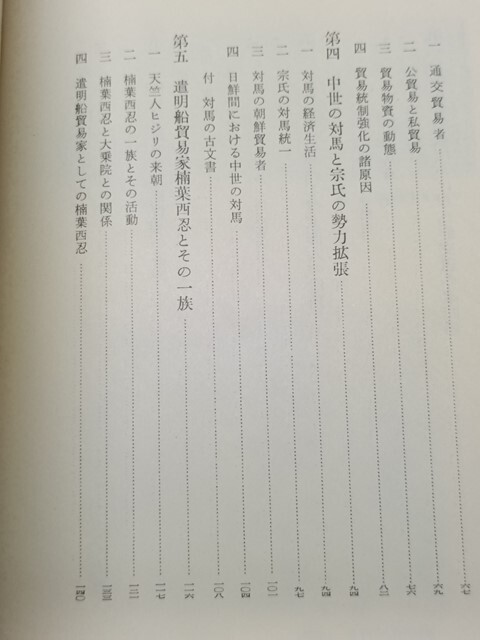 一 通交貿易者 六七
二 公貿易と私貿易 六九
三 貿易物資の動態 七六
四 貿易統制強化の諸原因 八三
第四 中世の対馬と宗氏の勢力拡張 九四
一 対馬の経済生活 九四
二 宗氏の対馬統一 九七
三 対馬の朝鮮貿易者 一〇一
四 日鮮間における中世の対馬 一〇四
付 対馬の古文書 一〇八
第五 遣明船貿易家楠葉西忍とその一族 一一六
一 天竺人ヒジリの来朝 一一七
二 楠葉西忍の一族とその活動 一二一
三 楠葉西忍と大乗院との関係 一三三
四 遣明船貿易家としての楠葉西忍 一四〇